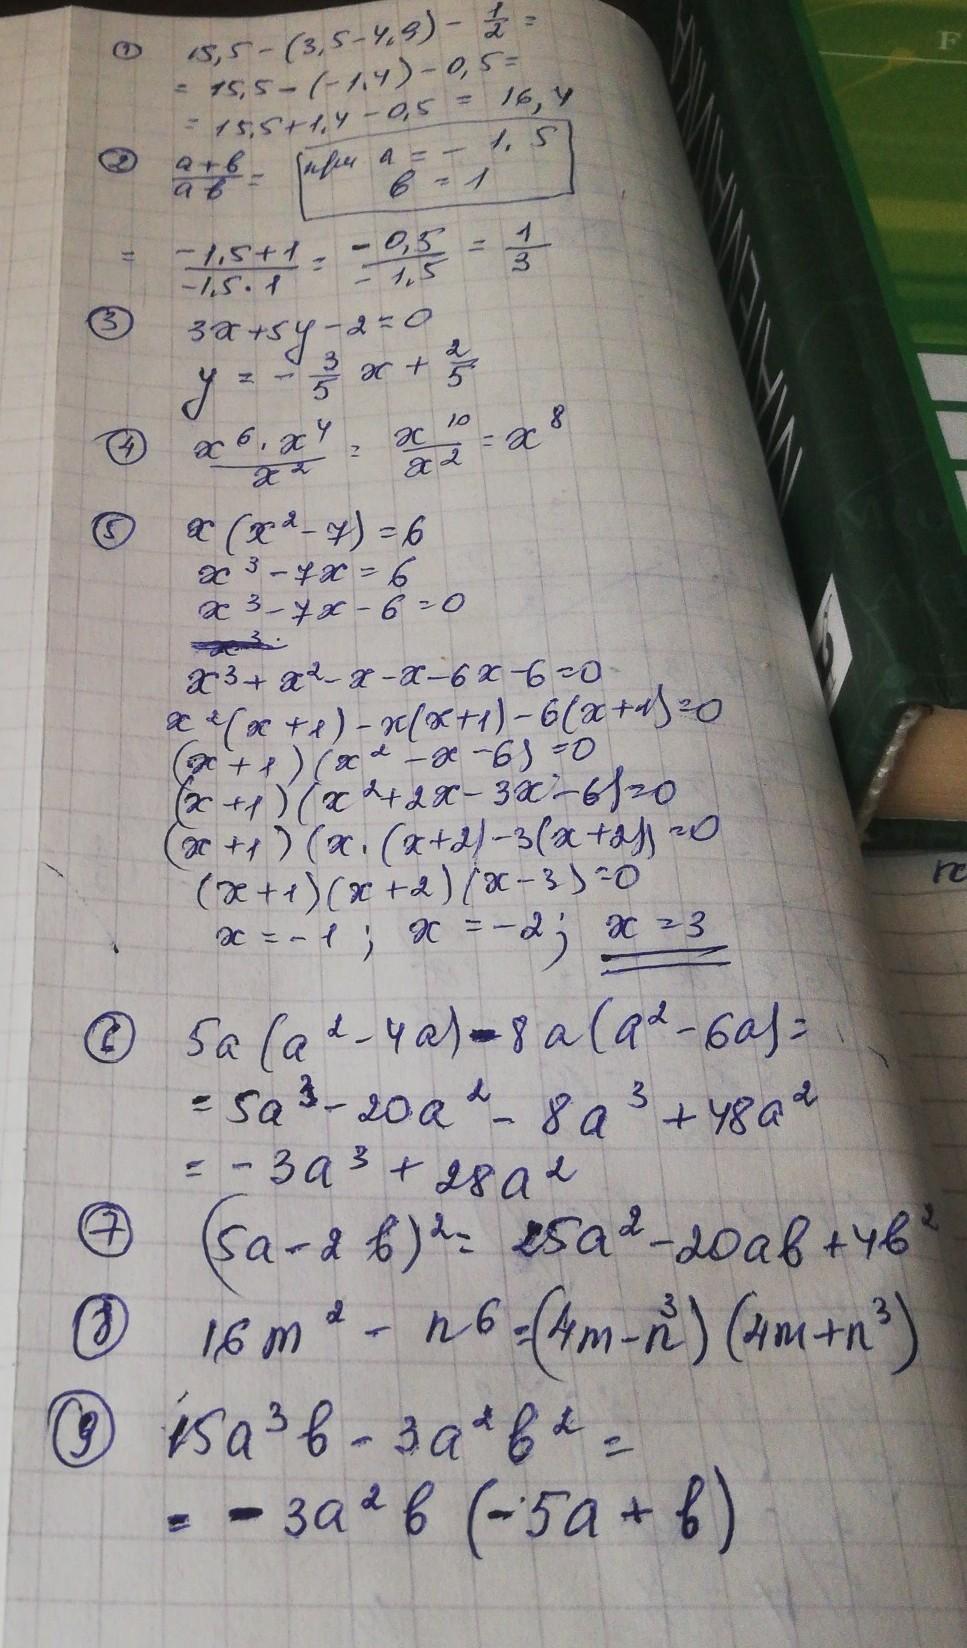 ① 15,5 - (3,5 - 4,9) - 1/2 =
= 15,5 - (-1,4) - 0,5 =
= 15,5 + 1,4 - 0,5 = 16,4
② (a+b)/(ab) = при a = -1,5
b = 1
= (-1,5+1)/(-1,5·1) = (-0,5)/(-1,5) = 1/3
③ 3x + 5y - 2 = 0
y = -3/5 x + 2/5
④ (x⁶·x⁴)/x² = x¹⁰/x² = x⁸
⑤ x(x² - 7) = 6
x³ - 7x = 6
x³ - 7x - 6 = 0
x³ + x² - x - x - 6x - 6 = 0
x²(x+1) - x(x+1) - 6(x+1) = 0
(x+1)(x² - x - 6) = 0
(x+1)(x² + 2x - 3x - 6) = 0
(x+1)(x·(x+2) - 3(x+2)) = 0
(x+1)(x+2)(x-3) = 0
x = -1; x = -2; x = 3
⑥ 5a(a² - 4a) - 8a(a² - 6a) =
= 5a³ - 20a² - 8a³ + 48a²
= -3a³ + 28a²
⑦ (5a - 2b)² = 25a² - 20ab + 4b²
⑧ 16m² - n⁶ = (4m - n³)(4m + n³)
⑨ 15a³b - 3a²b² =
= -3a²b(-5a + b)
F